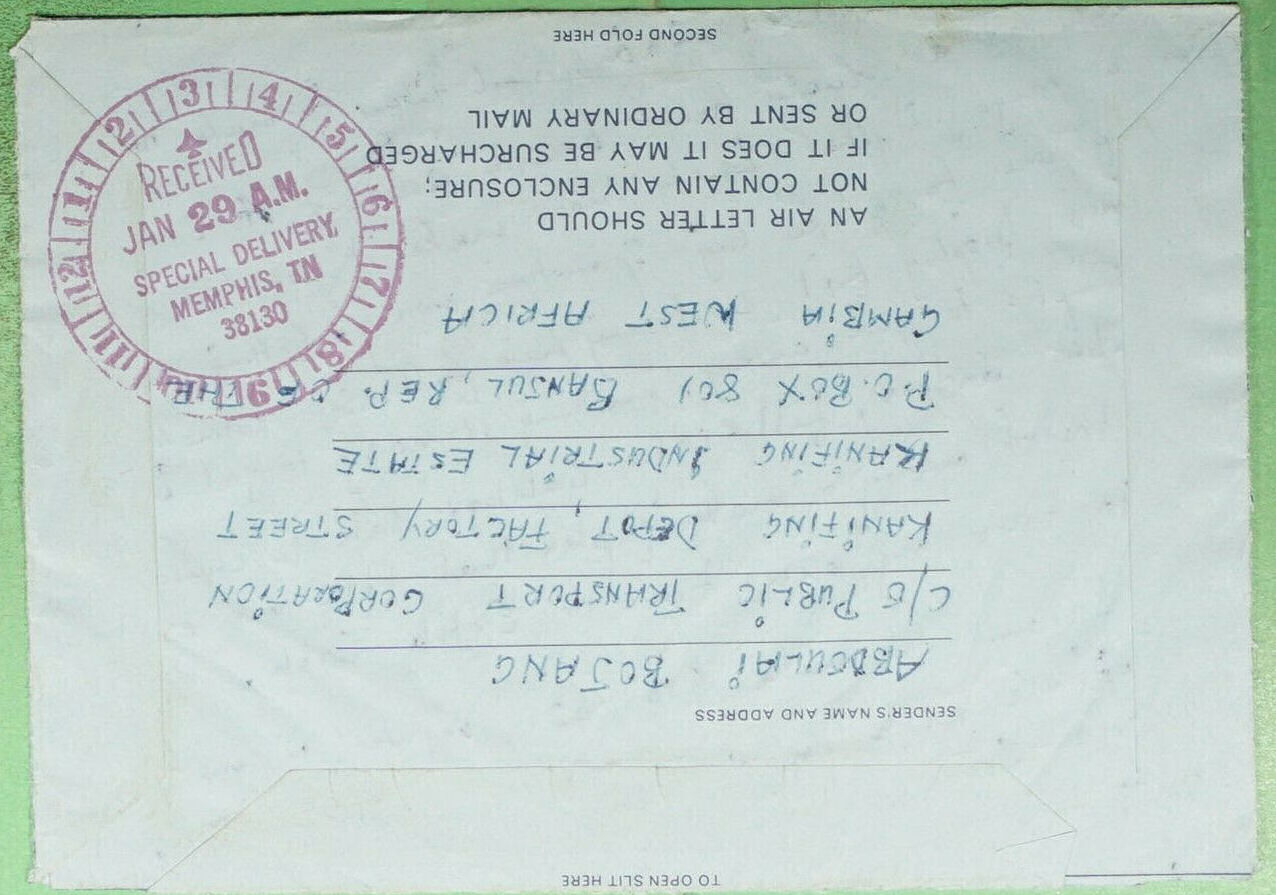 TO OPEN SLIT HERE
SENDER'S NAME AND ADDRESS
ABDOULAi BOJANG
C/O PUBLIC TRANSPORT CORPORATION
KANiFiNG DEPOT, FACTORY STREET
KANiFiNG INDUSTRIAL ESTATE
P.O. BOX 801 BANJUL, REP. OF THE
GAMBiA WEST AFRICA
AN AIR LETTER SHOULD
NOT CONTAIN ANY ENCLOSURE;
IF IT DOES IT MAY BE SURCHARGED
OR SENT BY ORDINARY MAIL
SECOND FOLD HERE
12 1 2 3 4 5 6 7 8 9 11
RECEIVED
JAN 29 A.M.
SPECIAL DELIVERY,
MEMPHIS, TN
38130